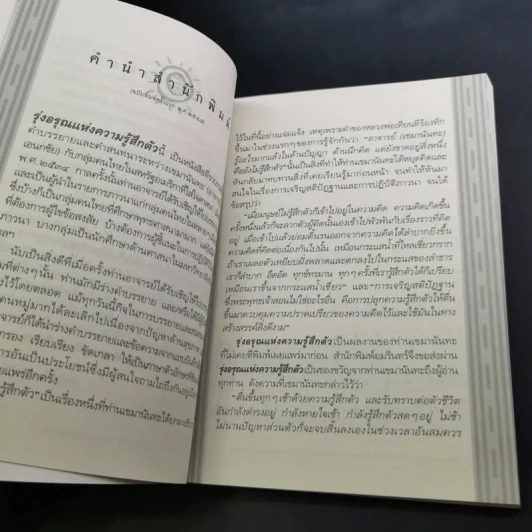 คำนำสำนักพิมพ์
รุ่งอรุณแห่งความรู้สึกตัวนี้ เป็นหนังสือที่
คำบรรยายและคำสนทนาระหว่างเขมานันทะ
(เอนกชัย) กับกลุ่มคนไทยในสหรัฐอเมริกา
พ.ศ. ๒๕๓๔ กาลครั้งนั้นท่านอาจารย์ได้รับเชิญให้
และเป็นผู้นำในรายการภาวนาแก่กลุ่มคนไทยใน
ซึ่งบ้างก็เป็นกลุ่มคนไทยที่ศึกษาพุทธศาสนามามาก แต่
ที่ต้องการผู้ไขข้อสงสัย บ้างต้องการผู้ชี้แนะในการปฏิบัติ
ภาวนา บางกลุ่มเป็นนักศึกษาด้านศาสนาในมหาวิทยาลัย
นับเป็นสิ่งดีที่เมื่อครั้งท่านอาจารย์ได้รับเชิญให้ไป
ที่ต่างๆ นั้น ท่านมักมีร่างคำบรรยาย และ
ไว้โดยตลอด แม้ทุกวันนี้กิจในการบรรยาย
หมู่มากได้ละเลิกไปเนื่องจากปัญหาด้านสุขภาพ
ก็ได้นำร่างคำบรรยายและข้อความจากแถบ
กรอง เรียบเรียง ขัดเกลา ให้เป็นภาษาตัวอักษร
การอันเป็นประโยชน์ซึ่งมีผู้สนใจถามไถ่ถึง
แพร่อีกครั้ง
รู้สึกตัว" เป็นเรื่องหนึ่งที่ท่านเขมานันทะ
ไว้ในที่นี้อย่างแจ่มแจ้ง เหตุเพราะคำของหลวงพ่อเทียนที่ร้องทัก
ขึ้นมาในช่วงแรกๆ ของการรู้จักกันว่า "อาจารย์ (เขมานันทะ)
รู้อะไรมากแล้วในด้านปัญญา ด้านนึกคิด แต่ยังขาดอยู่สิ่งหนึ่ง
คือยังไม่รู้สึกตัว" นั้นเป็นสิ่งที่ทำให้ท่านเขมานันทะได้หยุดคิดและ
หันกลับมาทบทวนสิ่งที่เคยเรียนรู้มาก่อนหน้า จนทำให้หันมา
สนใจในเรื่องการเจริญสติปัฏฐานและการปฏิบัติภาวนา จนได้
ข้อสรุปว่า
"เมื่อมนุษย์ไม่รู้สึกตัวก็เข้าไปอยู่ในความคิด ความคิดเกิดขึ้น
ครั้งหนึ่งแล้วก็จะลากตัวผู้คิดนั้นเองเข้าไปพัวพันกับเรื่องราวที่คิด
อยู่ เมื่อเข้าไปแล้วย่อมดิ้นรนออกจากความคิดได้ลำบากยิ่งขึ้น
ความคิดที่คิดต่อเนื่องกันไปนั้น เหมือนกระแสน้ำที่ไหลเชี่ยวกราก
ถ้าเราเผลอตัวเหยียบฝั่งพลาดและตกลงไปในกระแสของลำธาร
เราก็ลำบาก อึดอัด ทุกข์ทรมาน ทุกๆ ครั้งที่เรารู้สึกตัวได้ก็เปรียบ
เหมือนเราขึ้นจากกระแสน้ำเชี่ยว" และ "การเจริญสติปัฏฐาน
ซึ่งพระพุทธเจ้าสอนไม่ใช่อะไรอื่น คือการปลุกความรู้สึกตัวให้ตื่น
ขึ้นมาควบคุมความปราดเปรียวของความคิดไว้ และใช้มันในทาง
สร้างสรรค์สิ่งดีงาม"
รุ่งอรุณแห่งความรู้สึกตัวเป็นผลงานของท่านเขมานันทะ
ที่ไม่เคยตีพิมพ์เผยแพร่มาก่อน สำนักพิมพ์อมรินทร์จึงขอส่งผ่าน
รุ่งอรุณแห่งความรู้สึกตัวเป็นของขวัญจากท่านเขมานันทะถึงผู้อ่าน
ทุกท่าน ดังความที่เขมานันทะกล่าวไว้ว่า
"ตื่นขึ้นทุกๆ เช้าด้วยความรู้สึกตัว และรับทราบต่อตัวชีวิต
อันกำลังดำรงอยู่ กำลังหายใจเข้า กำลังรู้สึกตัวสดๆ อยู่ ไม่ช้า
ไม่นานปัญหาส่วนตัวก็จะจบสิ้นลงเองในช่วงเวลาอันสมควร